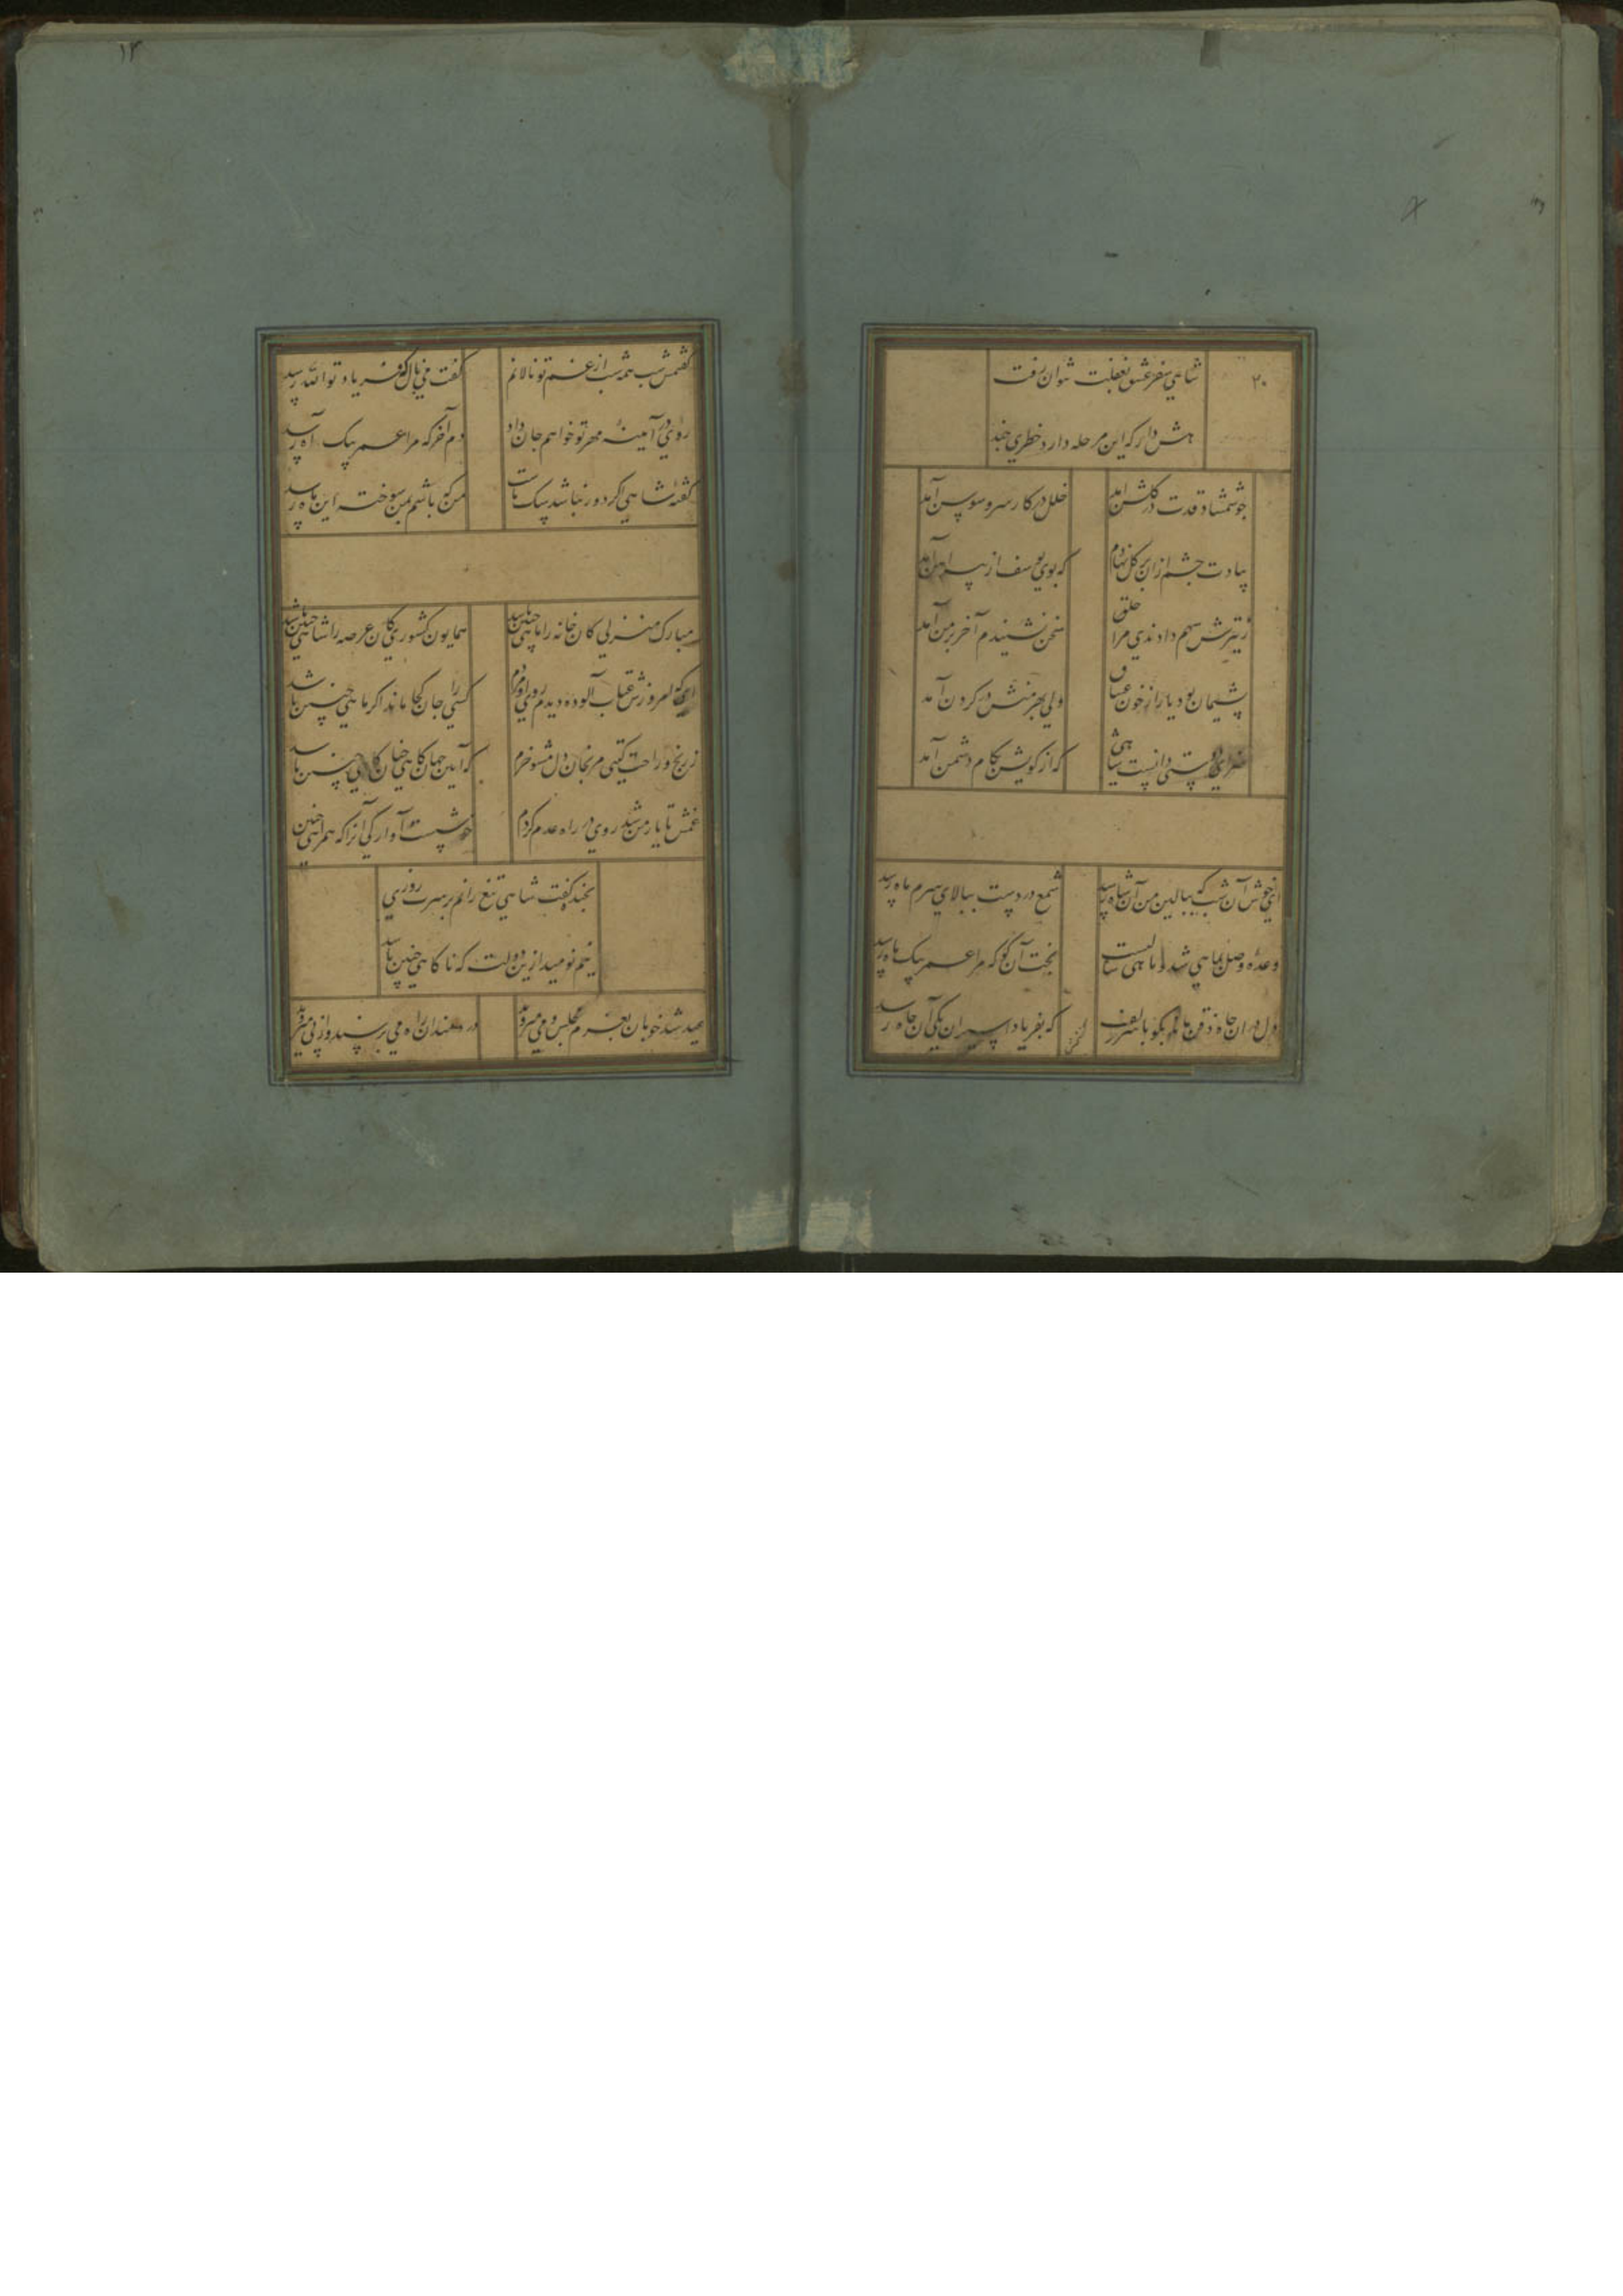 ۱۲
۲۰
شاهی سفر عشق بغفلت نتوان رفت
هش دار که این مرحله دارد خطری چند
چو شمشاد قدت در گلشن آمد
خلل در کار سرو و سوسن آمد
بیادت چشم از آن بر گل نهادم
که بوی یوسف از پیراهن آمد
ز تیرش سهم دادندی مرا خلق
سخن نشنیدم آخر بر من آمد
پشیمان بود یار از خون عشاق
ولی بهر منش در گردن آمد
دوستی دانست شاهی
که از کویش بکام دشمن آمد
ای خوش آن شب که ببالین من آن شاه رسد
شمع در دست ببالای سرم ماه رسد
وعده وصل بماهی شد و تا ماهی نیست
بخت آن کو که مرا عمر بیک ماه رسد
دل در آن چاه ذقن ماند بگو با سر زلف
که بفریاد اسیران یکی آن چاه رسد
گفتمش
گفتمش شب همه شب از غم تو نالانم
گفت می نال که فریاد تو الله رسد
روی در آینه مهر تو خواهم جان داد
دم آخر که مرا عمر بیک آه رسد
گفته شاهی اگر دور نباشد پیکت
من که باشم بمن سوخته این رسد
مبارک منزلی کان خانه را ماهی چنین باشد
همایون کشوری کان عرصه را شاهی چنین باشد
که امروزش عتاب آلوده دیدم روی او مردم
کسی را جان کجا ماند اگر ماهی چنین باشد
ز رنج و راحت گیتی مرنجان دل مشو خرم
که آیین جهان گاهی چنان گاهی چنین باشد
غمش تا یار من شد روی در راه عدم کردم
خوشست آوارگی آنرا که همراهی چنین
بخنده گفت شاهی تیغ رانم بر سرت روزی
نیم نومید ازین دولت که ناگاهی چنین باشد
عید شد خوبان بعزم مجلس و می میروند
دردمندان راه می پرسند و از پی میروند